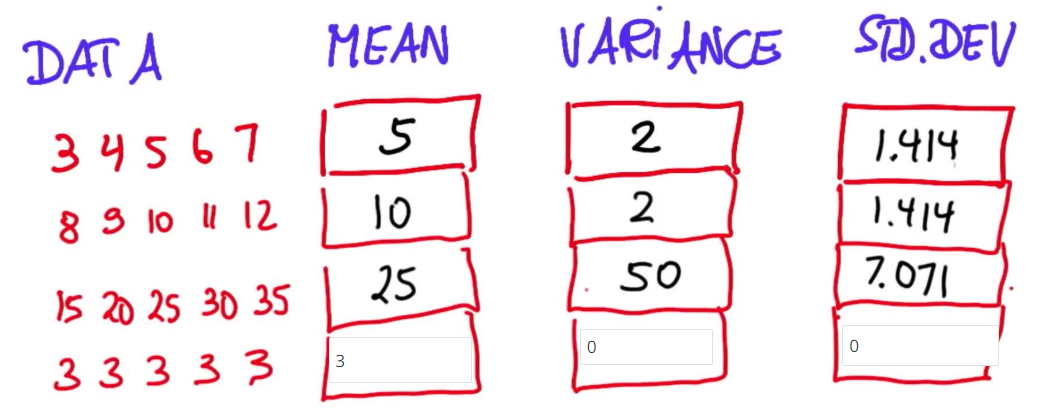 DATA MEAN VARIANCE STD.DEV
3 4 5 6 7 5 2 1.414
8 9 10 11 12 10 2 1.414
15 20 25 30 35 25 50 7.071
3 3 3 3 3 3 0 0